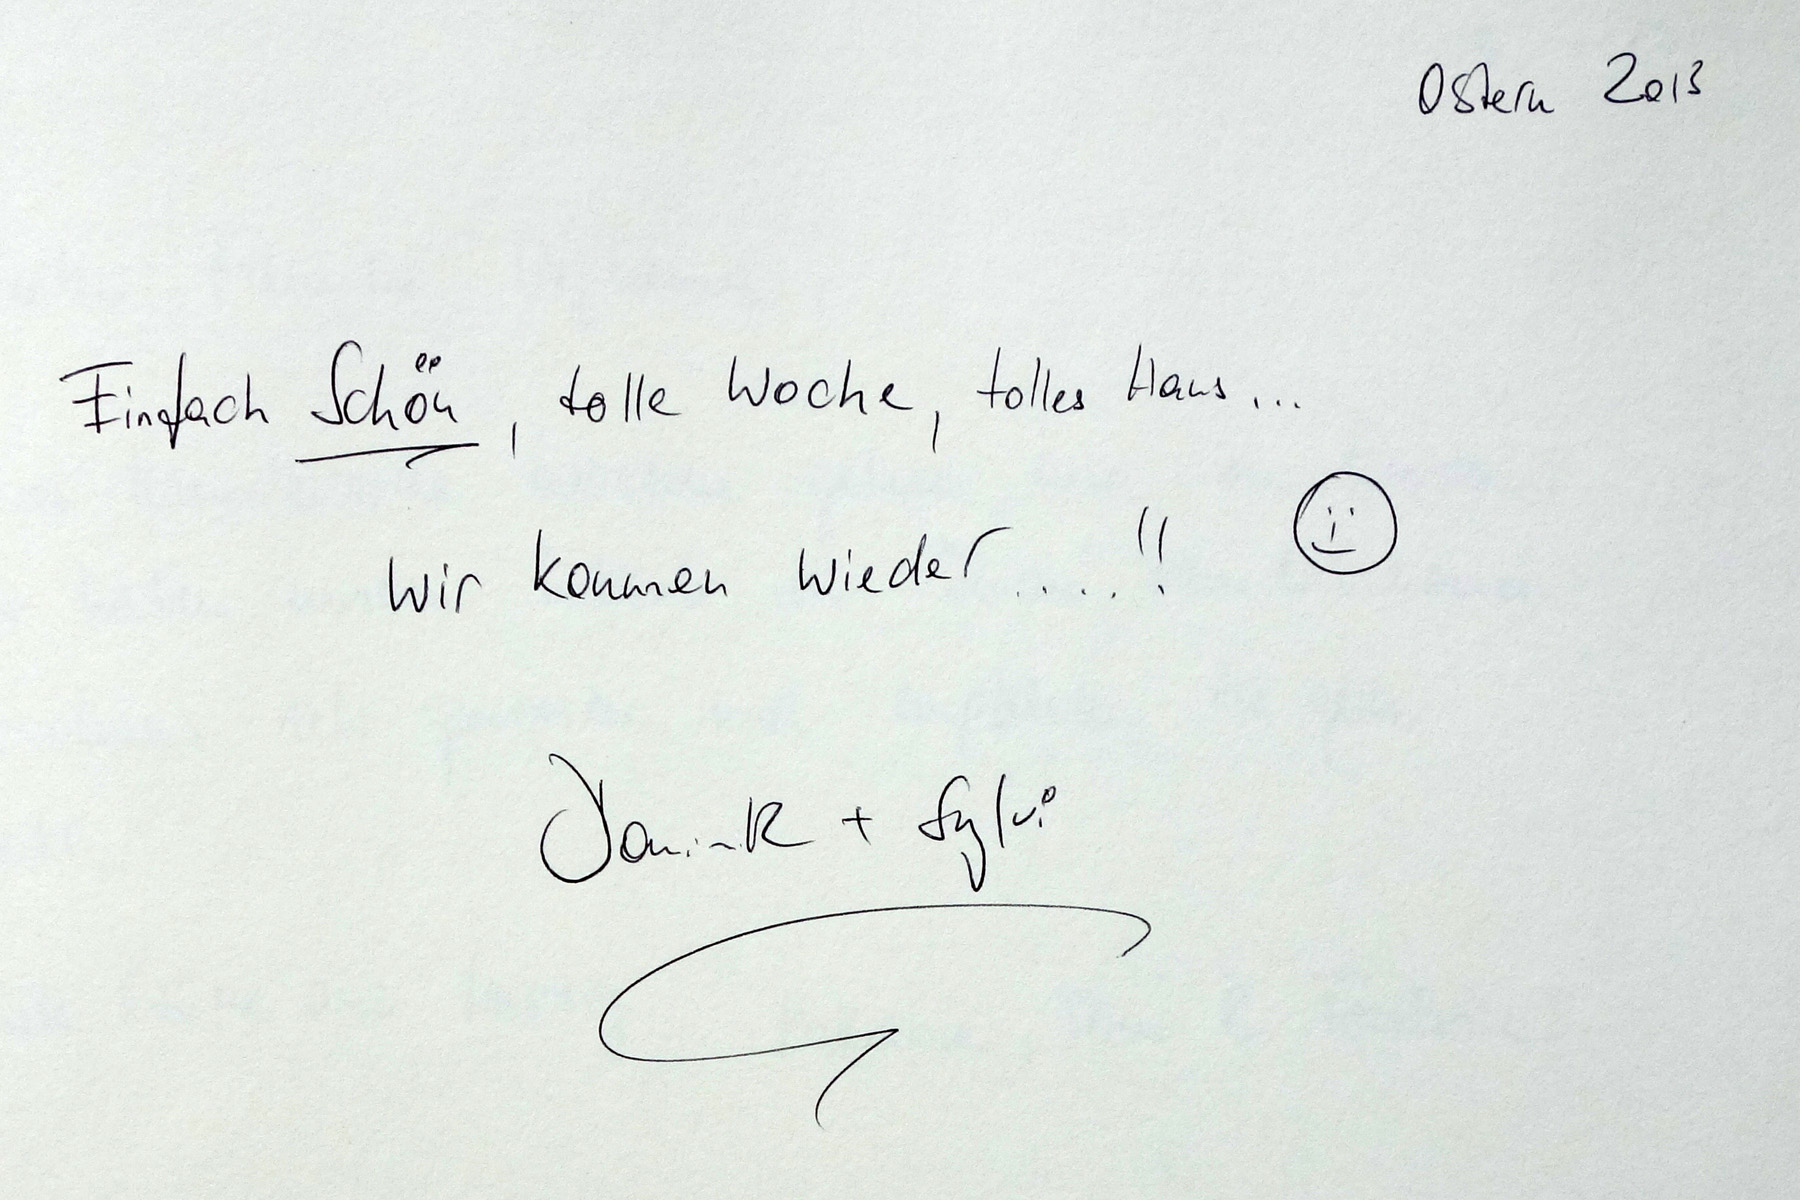 Ostern 2013
Einfach Schön, tolle Woche, tolles Haus...
Wir kommen wieder....!!
Dominik + Sylvi